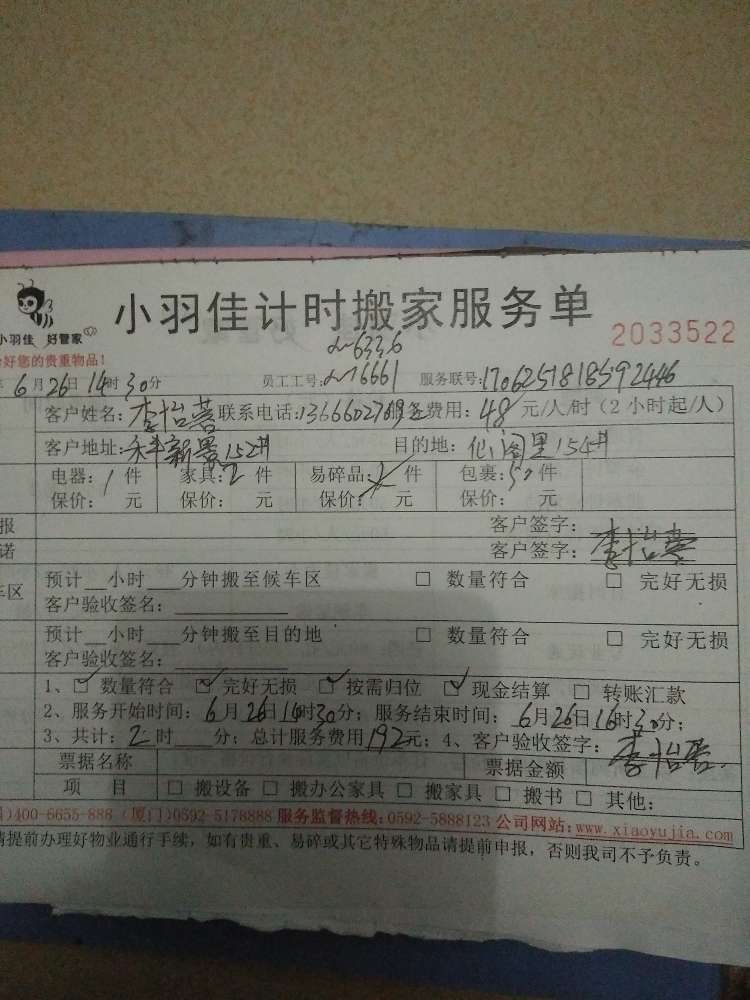 小羽佳计时搬家服务单
小羽佳 好管家
2033522
好您的贵重物品！
6336
6月26日14时30分 员工工号：16661 服务联号：1706251818592446
客户姓名：李怡 联系电话：服务费用：48元/人/时（2小时起/人）
客户地址：禾丰新景152# 目的地：仙阁里154#
电器：1件 家具：2件 易碎品：件 包裹：50件
保价：元 保价：元 保价：元 保价：元
报 客户签字：
诺 客户签字：李怡
车区 预计__小时___分钟搬至候车区 □ 数量符合 □ 完好无损
客户验收签名：
预计__小时___分钟搬至目的地 □ 数量符合 □ 完好无损
客户验收签名：
1、☑ 数量符合 ☑ 完好无损 ☑ 按需归位 ☑ 现金结算 □ 转账汇款
2、服务开始时间：6月26日14时30分；服务结束时间：6月26日16时30分；
3、共计：2时___分；总计服务费用192元；4、客户验收签字：李怡
票据名称 票据金额
项 目 □ 搬设备 □ 搬办公家具 □ 搬家具 □ 搬书 □ 其他：
)400-6655-888（厦门)0592-5178888 服务监督热线：0592-5888123 公司网站：www.xiaoyujia.com
请提前办理好物业通行手续，如有贵重、易碎或其它特殊物品请提前申报，否则我司不予负责。